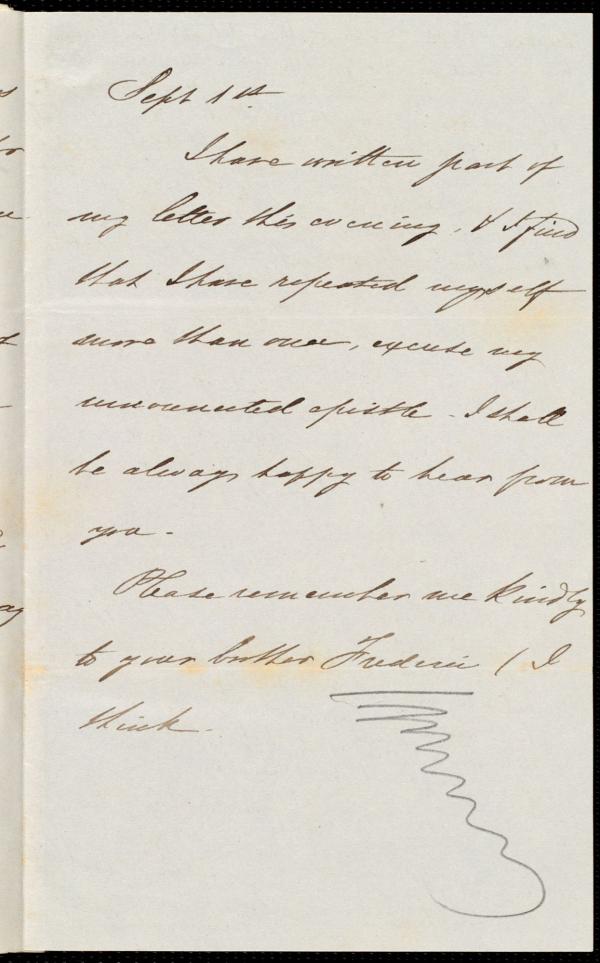 Sept 1st
I have written part of
my letter this evening, & I find
that I have repeated myself
more than once, excuse my
unconnected epistle - I shall
be always happy to hear from
you -
Please remember me kindly
to your brother Frederic ( I
think.